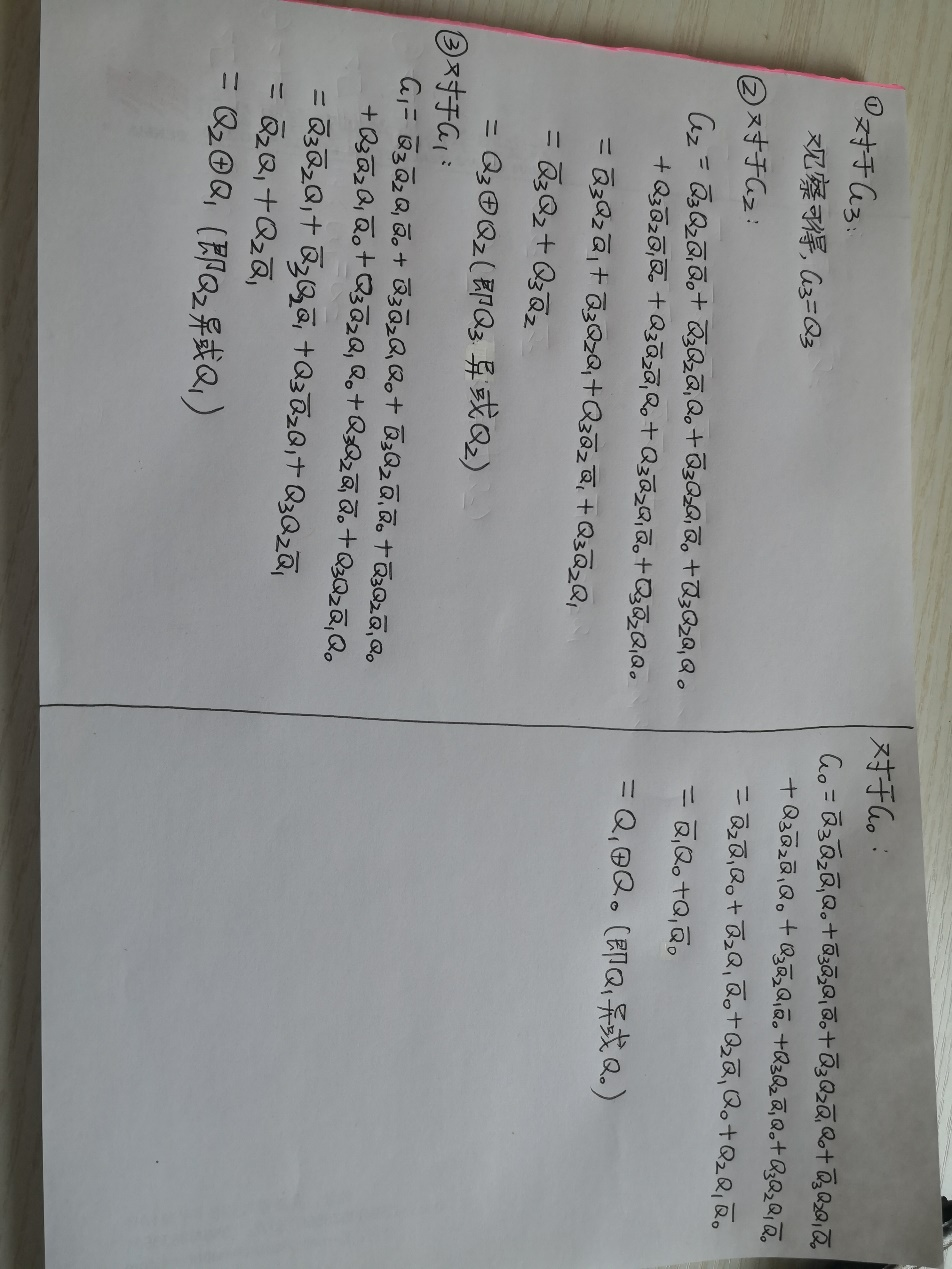 ①对于G₃:
观察可得, G₃=Q₃
②对于G₂:
G₂ = Q̅₃Q₂Q̅₁Q̅₀ + Q̅₃Q₂Q̅₁Q₀ + Q̅₃Q₂Q₁Q̅₀ + Q̅₃Q₂Q₁Q₀
+ Q₃Q̅₂Q̅₁Q̅₀ + Q₃Q̅₂Q̅₁Q₀ + Q₃Q̅₂Q₁Q̅₀ + Q₃Q̅₂Q₁Q₀
= Q̅₃Q₂Q̅₁ + Q̅₃Q₂Q₁ + Q₃Q̅₂Q̅₁ + Q₃Q̅₂Q₁
= Q̅₃Q₂ + Q₃Q̅₂
= Q₃⊕Q₂ (即Q₃ 异或Q₂)
③对于G₁:
G₁ = Q̅₃Q̅₂Q₁Q̅₀ + Q̅₃Q̅₂Q₁Q₀ + Q̅₃Q₂Q̅₁Q̅₀ + Q̅₃Q₂Q̅₁Q₀
+ Q₃Q̅₂Q₁Q̅₀ + Q₃Q̅₂Q₁Q₀ + Q₃Q₂Q̅₁Q̅₀ + Q₃Q₂Q̅₁Q₀
= Q̅₃Q̅₂Q₁ + Q̅₃Q₂Q̅₁ + Q₃Q̅₂Q₁ + Q₃Q₂Q̅₁
= Q̅₂Q₁ + Q₂Q̅₁
= Q₂⊕Q₁ (即Q₂异或Q₁)
对于G₀:
G₀ = Q̅₃Q̅₂Q̅₁Q₀ + Q̅₃Q̅₂Q₁Q̅₀ + Q̅₃Q₂Q̅₁Q₀ + Q̅₃Q₂Q₁Q̅₀
+ Q₃Q̅₂Q̅₁Q₀ + Q₃Q̅₂Q₁Q̅₀ + Q₃Q₂Q̅₁Q₀ + Q₃Q₂Q₁Q̅₀
= Q̅₂Q̅₁Q₀ + Q̅₂Q₁Q̅₀ + Q₂Q̅₁Q₀ + Q₂Q₁Q̅₀
= Q̅₁Q₀ + Q₁Q̅₀
= Q₁⊕Q₀ (即Q₁异或Q₀)